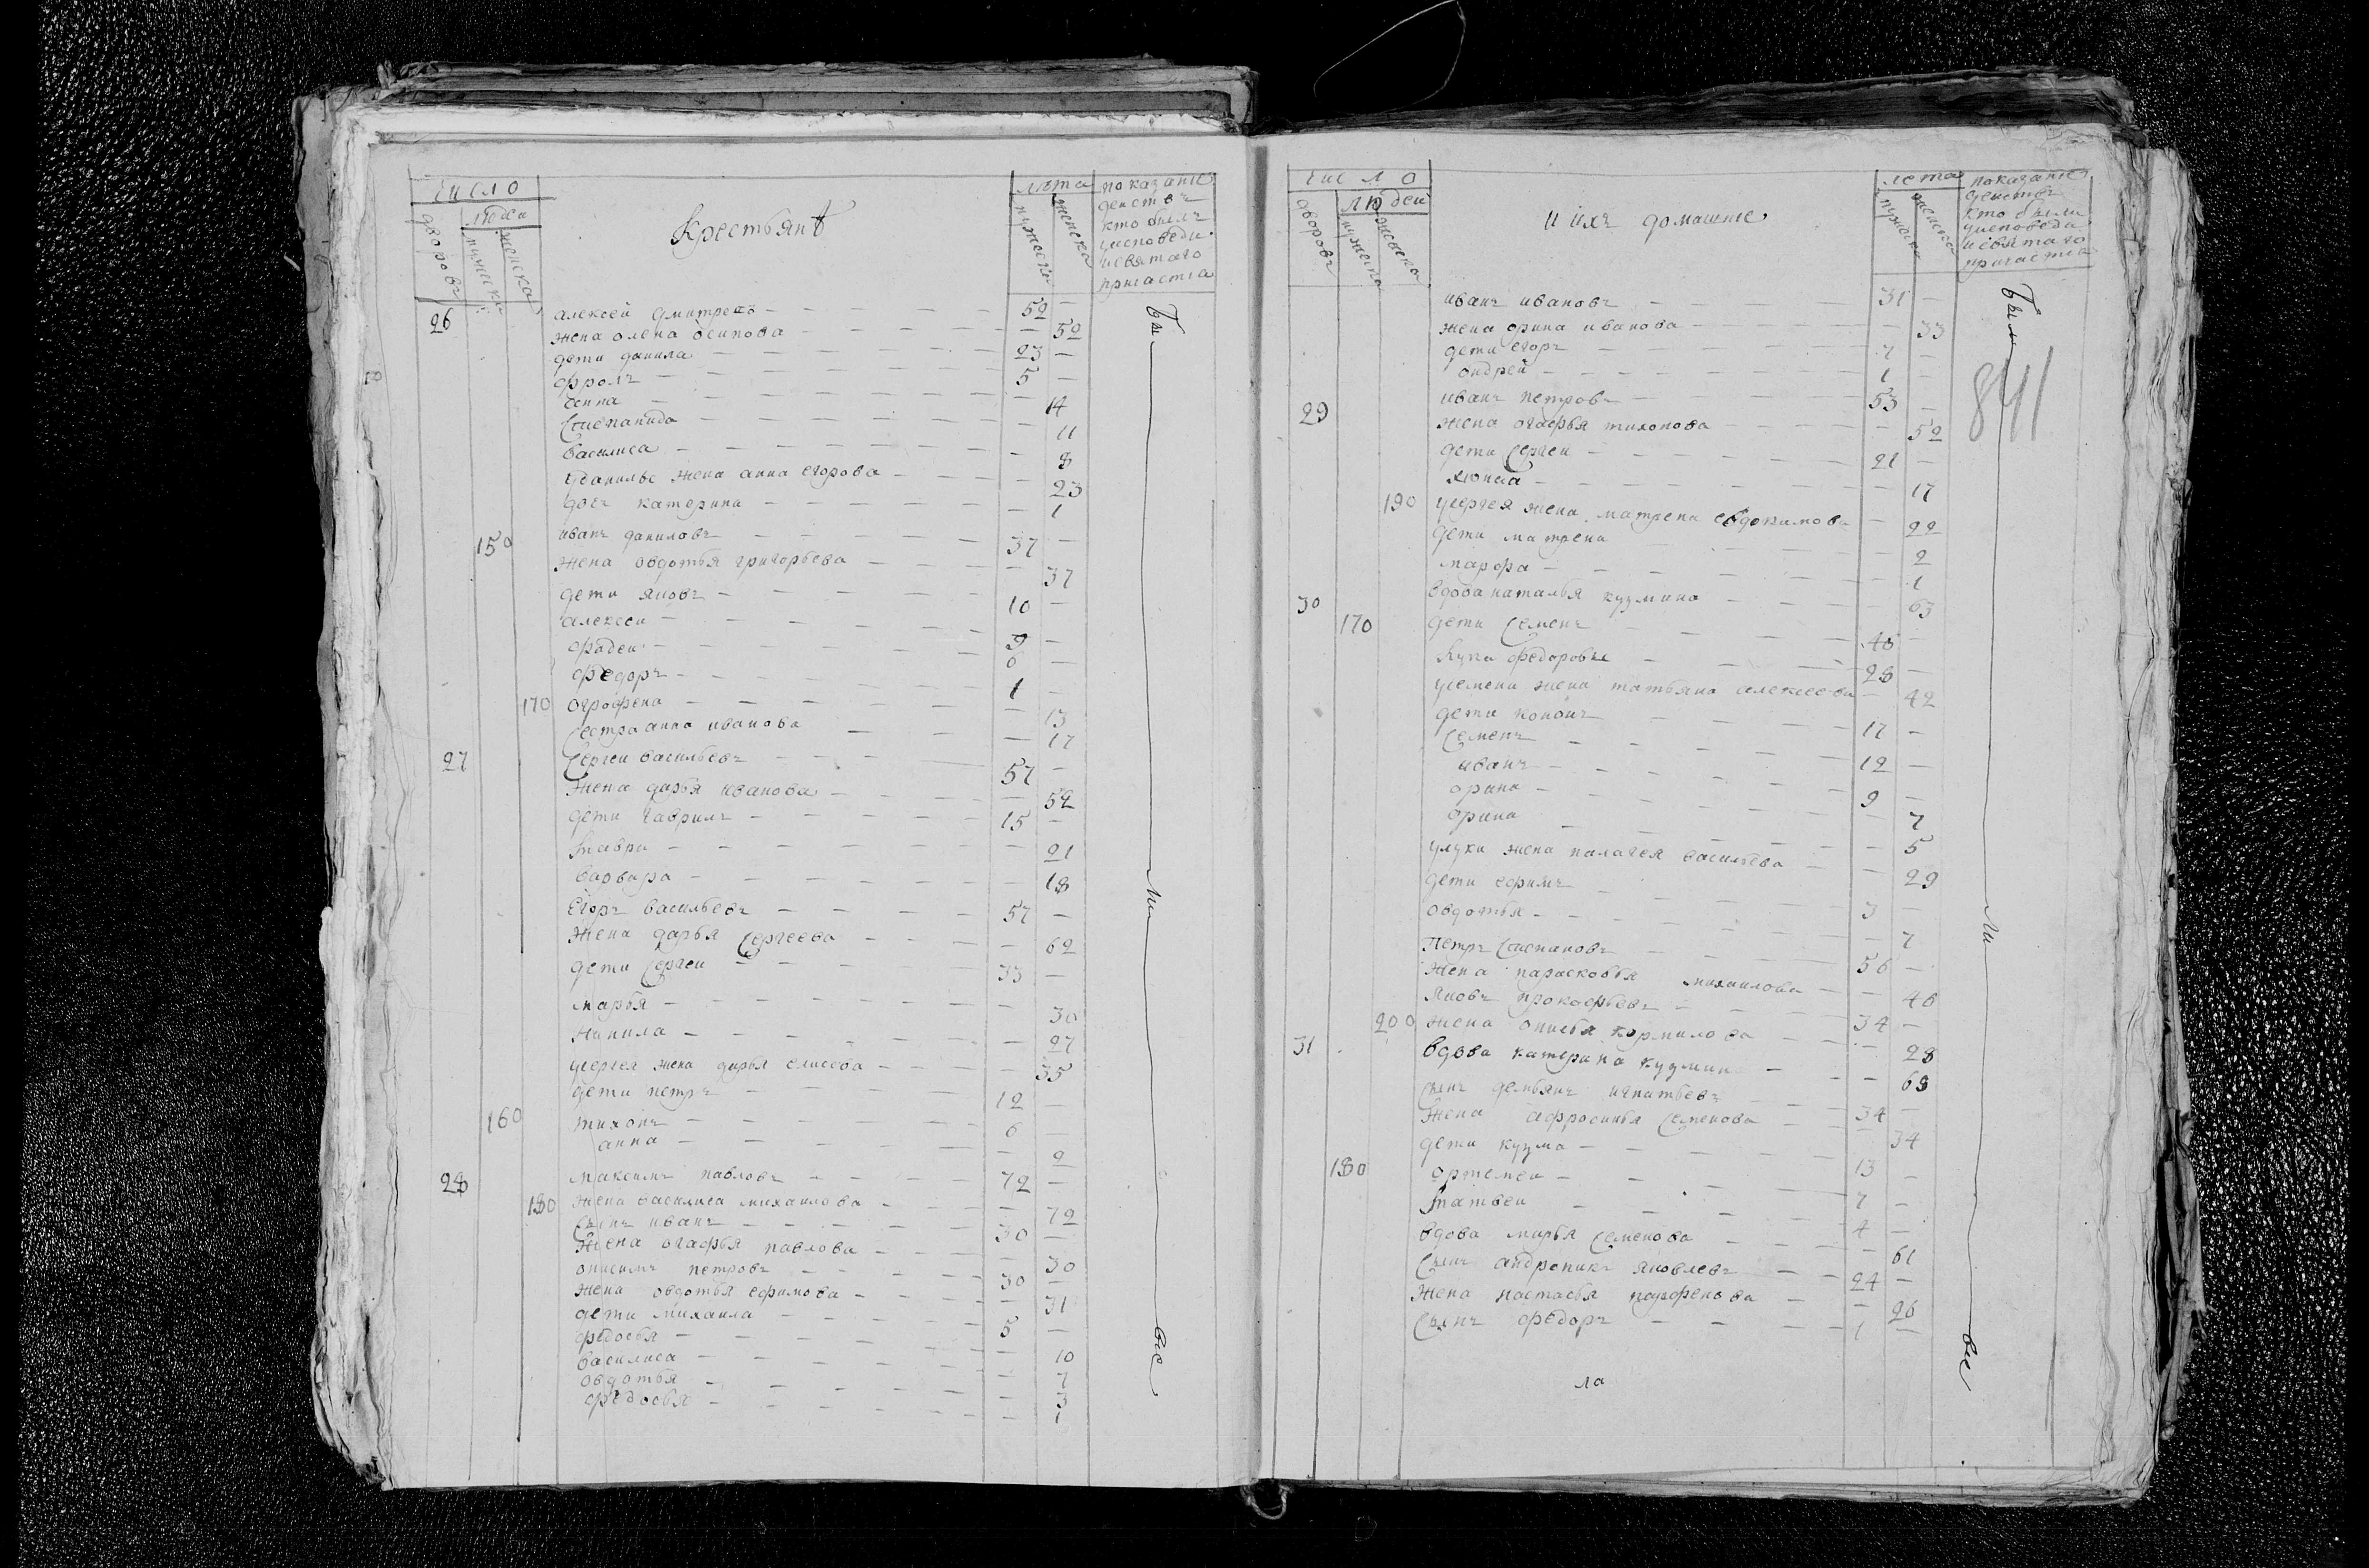 число
людеи
дворовъ
мужеска
женска
Крестьянѣ
лѣта
мужеска
женска
показание
деиствъ
кто былъ
уисповеди
исвятаго
причастия
26 алексей дмитреевъ — 52 —
жена олена осипова — — 52
дети данила — 23 —
фролъ — 5 —
анна — — 14
Степанида — — 11
василиса — — 8
уданилы жена анна егорова — — 23
дочь катерина — — 1
150 иванъ даниловъ — 37 —
жена овдотья григорьева — — 37
дети яковъ — 10 —
алексеи — 9 —
фадеи — 6 —
федоръ — 1 —
170 огрофена — — 13
сестра анна иванова — — 17
27 Сергеи васильевъ — 57 —
жена дарья иванова — — 52
дети гаврилъ — 15 —
мавра — — 21
варвара — — 18
Егоръ васильевъ — 57 —
жена дарья Сергеева — — 62
дети Сергеи — 33 —
марья — — 30
ненила — — 27
усергея жена дарья елисеева — — 35
дети петръ — 12 —
160 тихонъ — 6
анна — — 2
28 максимъ павловъ — 72 —
180 жена василиса михаилова — — 72
Сынъ иванъ — 30 —
жена огафья павлова — — 30
онисимъ петровъ — 30 —
жена овдотья ефимова — — 31
дети михаила — 5 —
федосья — — 10
василиса — — 7
овдотья — — 3
федосья — — 1
Бы
ли
все
число
людеи
дворовъ
мужеска
женска
и ихъ домашние
лета
мужеска
женска
показание
деиствъ
кто были
уисповеди
исвятаго
причастия
841
иванъ ивановъ — 31 —
жена орина иванова — — 33
дети егоръ — 7 —
ондрей — 1
29 иванъ петровъ — 53 —
жена огафья тихонова — — 52
дети Сергеи — 21 —
— — 17
190 усергея жена матрена евдокимова — 22
дети матрена — 2
марфа — — 1
30 вдова наталья кузмина — — 63
170 дети Семенъ — 46 —
лука федоровы — 28 —
усемена жена татьяна алексеева — 42
дети кононъ — 17 —
Семенъ — 12 —
иванъ — 9 —
орина — — 7
орина — — 5
улуки жена палагея васильева — — 29
дети ефимъ — 3 —
овдотья — — 7
петръ Степановъ — 56 —
жена парасковья михаилова — — 46
яковъ прокофьевъ — 34 —
200 жена онисья кормилова — — 28
31 вдова катерина кузмина — — 68
сынъ демьянъ игнатьевъ — 34 —
жена афросинья Семенова — — 34
дети кузма — 13 —
180 ортемеи — 7 —
матвеи — 4 —
вдова марья Семенова — — 61
Сынъ андроникъ яковлевъ — 24 —
жена настасья парфенова — — 26
Сынъ федоръ — 1 —
ла
Были
ли
все